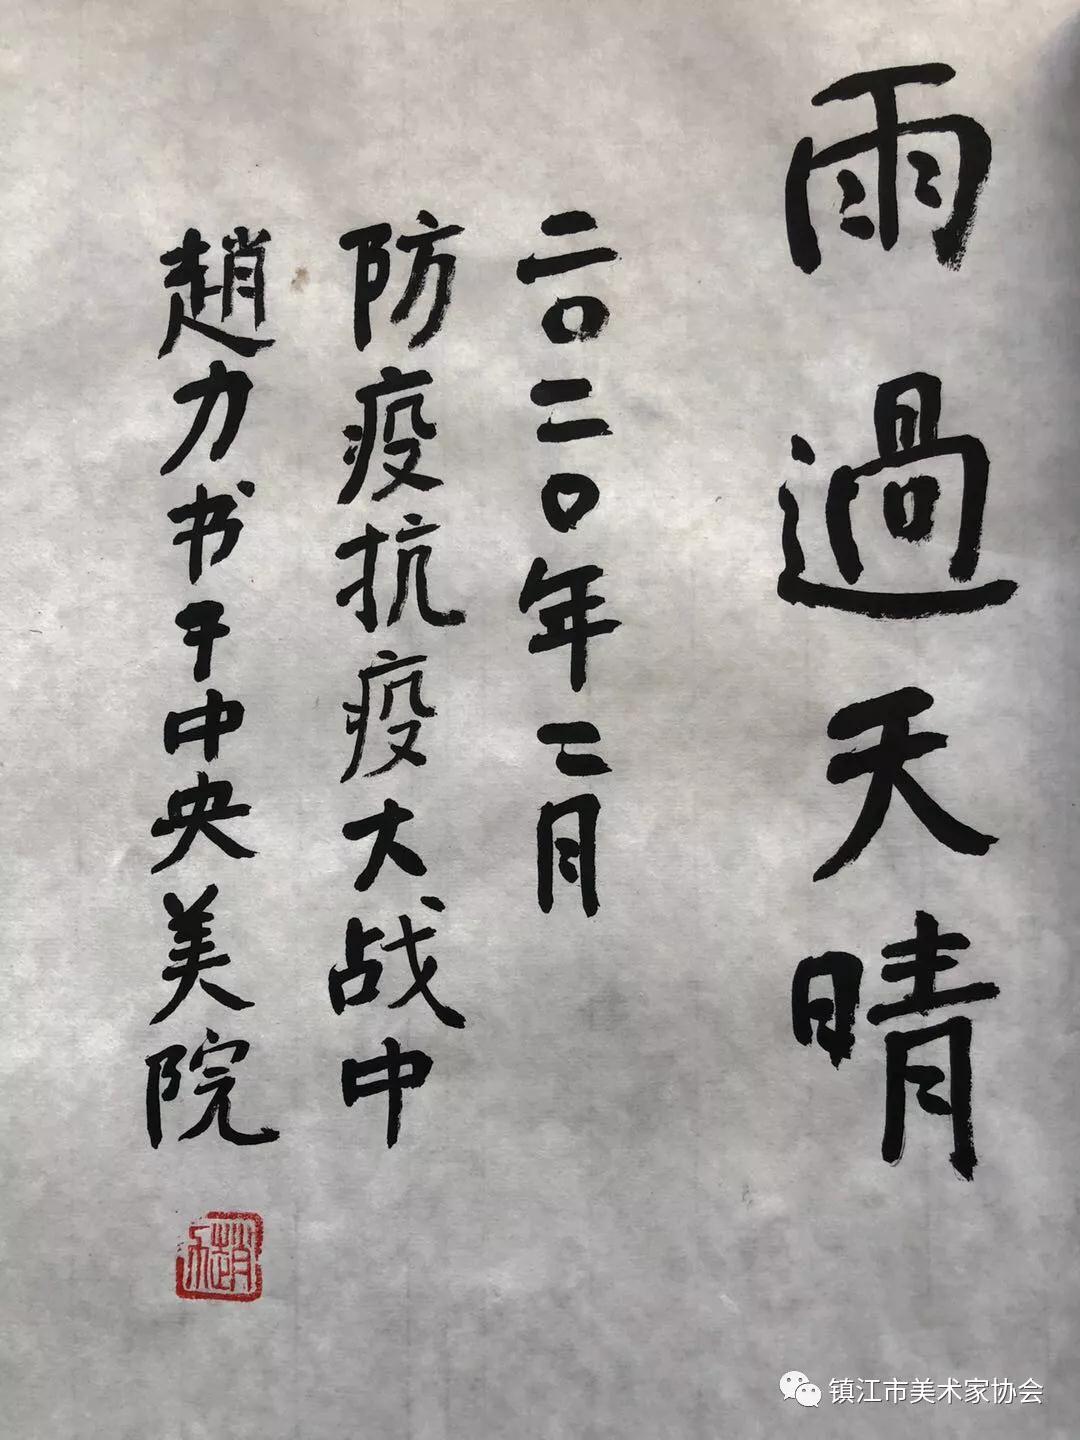 雨過天晴
二〇二〇年二月
防疫抗疫大战中
趙力书于中央美院
镇江市美术家协会